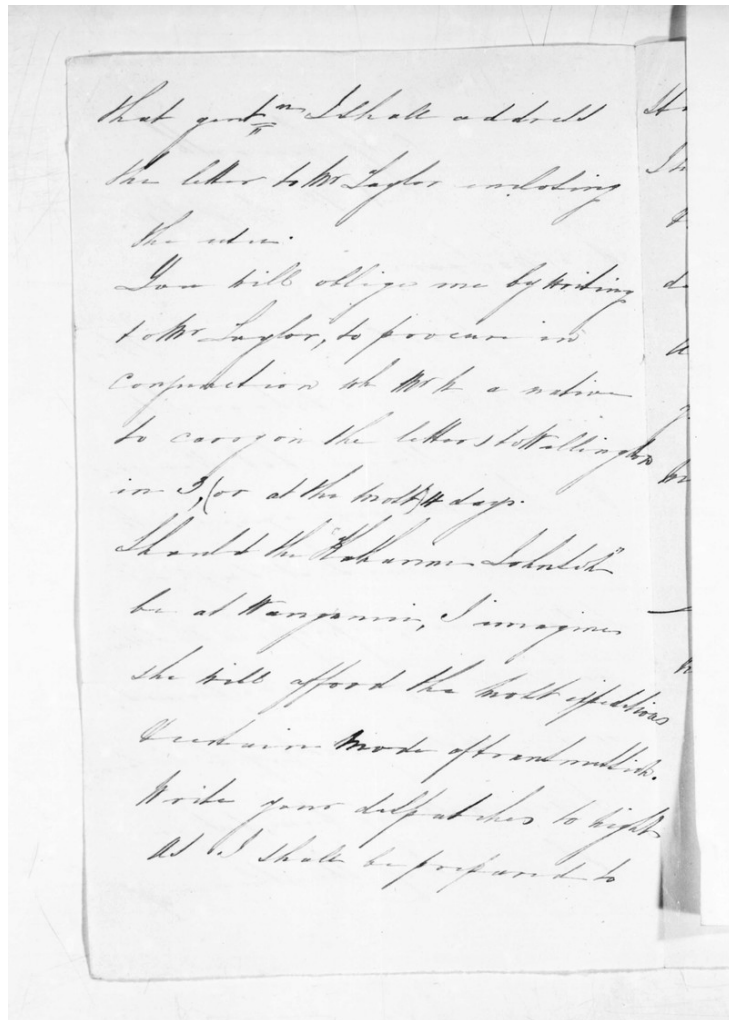 that gentn I shall address
the letter to Mr Taylor inclosing
the
You will oblige me by writing
to Mr Taylor, to procure in
conjunction wh Mr K a native
to carry on the letters to Wellington
in 3, (or at the most) 4 days.
Should the "Katharine Johnston"
be at Wanganui, I imagine
she will afford the most expeditious
& certain mode of transmission.
Write your despatches to night
as I shall be prepared to